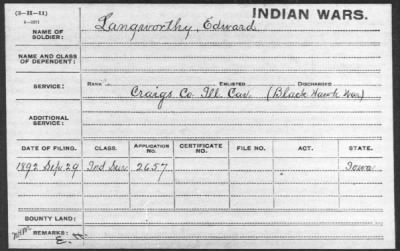 (3-H-11)
INDIAN WARS.
NAME OF SOLDIER: Langworthy, Edward
NAME AND CLASS OF DEPENDENT:
SERVICE: RANK ENLISTED DISCHARGED
Craigs Co. Ill. Cav. (Black Hawk War)
ADDITIONAL SERVICE:
DATE OF FILING. CLASS. APPLICATION NO. CERTIFICATE NO. FILE NO. ACT. STATE.
1892 Sep. 29 Ind Sur. 2657 Iowa
BOUNTY LAND:
REMARKS: